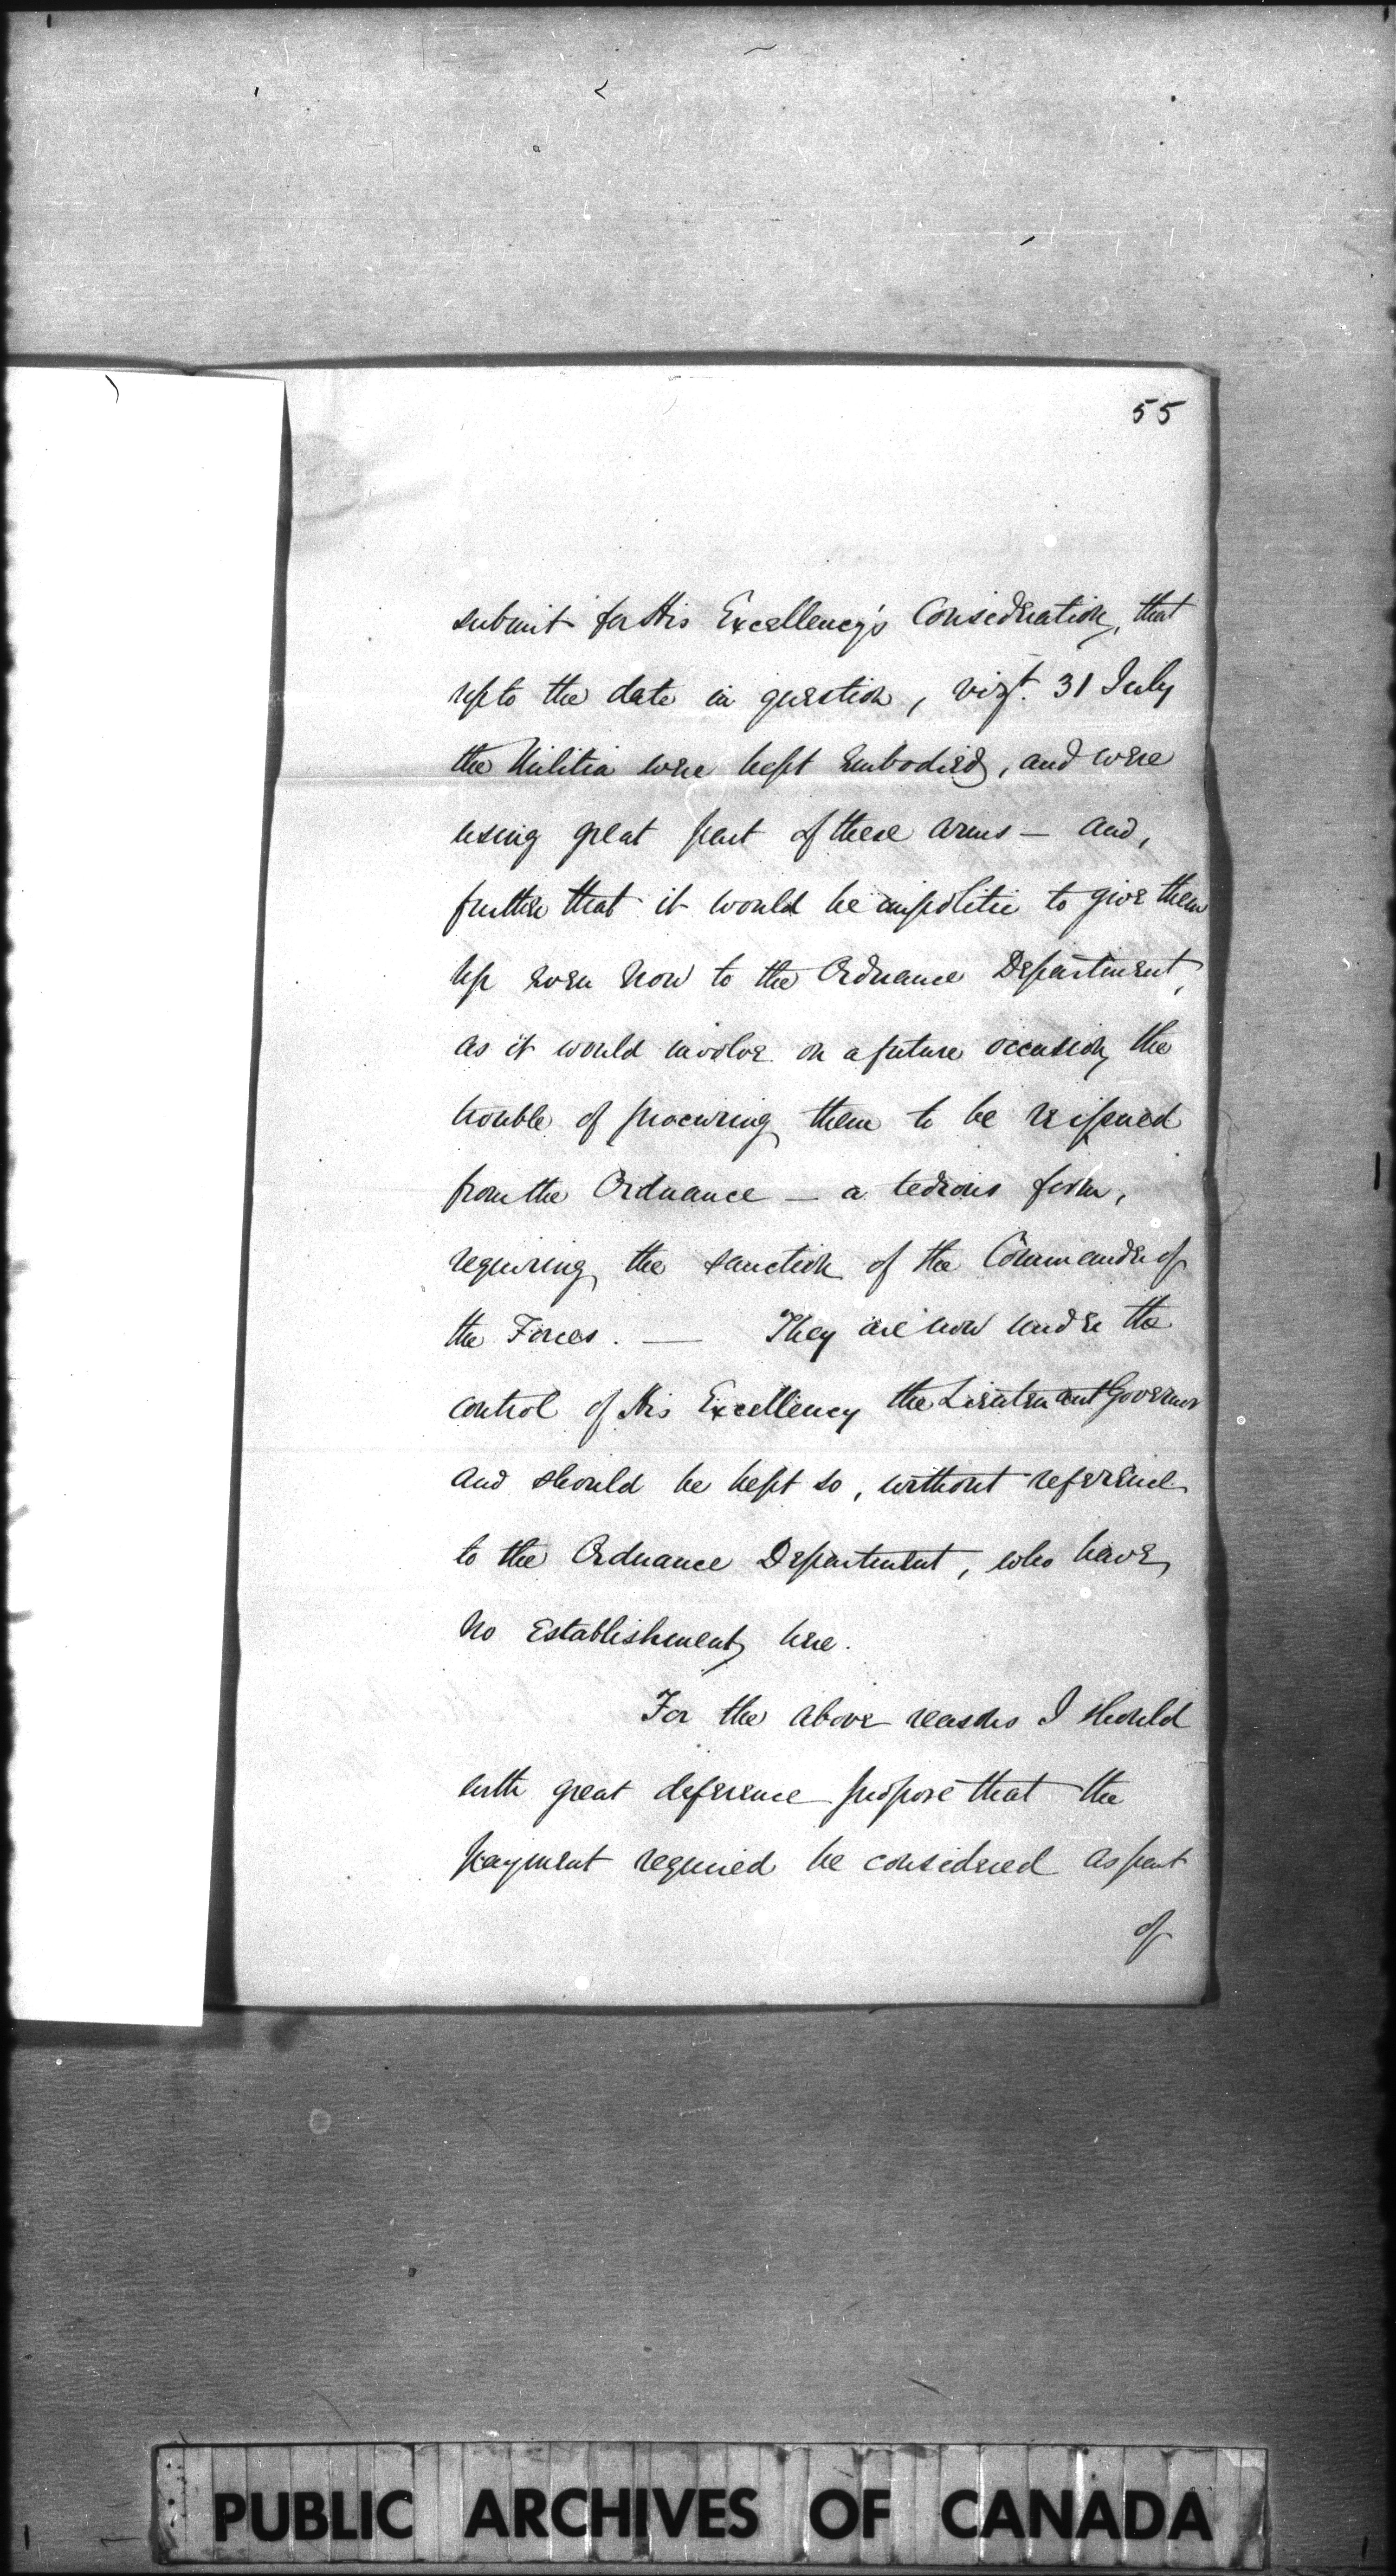 55
submit for His Excellency's Consideration, that
up to the date in question, vizt. 31 July
the Militia were kept embodied, and were
using great part of these arms — and,
further that it would be impolitic to give them
up even now to the Ordnance Department,
as it would involve on a future occasion, the
trouble of procuring them to be reissued
from the Ordnance — a tedious form,
requiring the sanction of the Commander of
the Forces. — They are now under the
control of His Excellency the Lieutenant Governor
and should be kept so, without reference
to the Ordnance Department, who have
no Establishment here.
For the above reasons I should
with great deference propose that the
payment required be considered as part
of
PUBLIC ARCHIVES OF CANADA